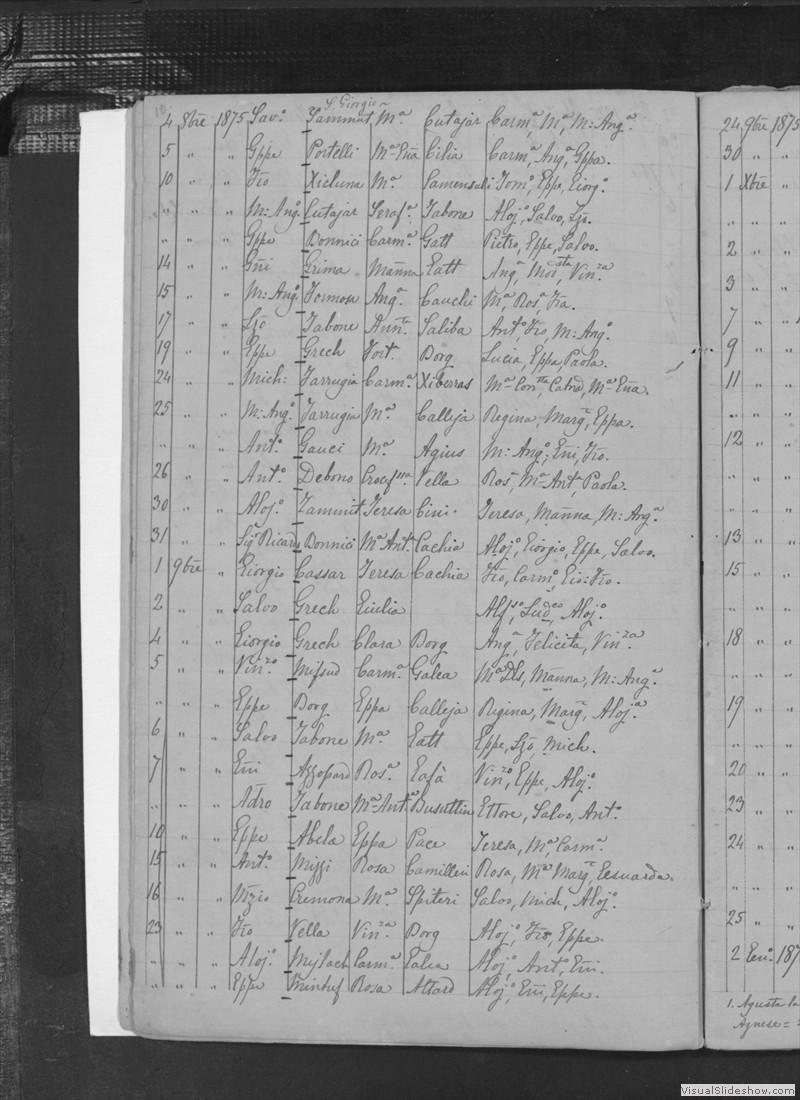 S. Giorgio
10.
4 8bre 1875 Sav.o Sammut M.a Cutajar Carm.a, M.a, M: Ang.a
5 " " Gppe Portelli M.a Cilia Carm.a, Ang.a, Gppa.
10 " " Fro Xicluna M.a Tom.o, Eppe, Giorg.o
" " " M: Ang.o Cutajar Seraf.a Tabone Aloj.o, Salvo, Lzo.
" " " Gppe Bonnici Carm.a Gatt Pietro, Eppe, Salvo.
14 " " Gñi Grima Mañna Gatt Ang.a, Vin.za
15 " " M: Ang.o Formosa Ang.a Cauchi M.a, Ros.a, Fra.
17 " " Lzo Tabone Saliba Ant.o, Fro, M: Ang.o
19 " " Eppe Grech Fort. Borg Lucia, Eppa, Paola.
24 " " Mich: Farrugia Carm.a Xiberras
25 " " M: Ang.o Farrugia M.a Calleja Regina, Marg.ta, Eppa.
" " " Ant.o Gauci M.a Agius M: Ang.o, Gñi, Fro.
26 " " Ant.o Debono Crocif.ssa Vella Ros.a, M.a Ant.a, Paola.
30 " " Aloj.o Zammit Teresa Cini Teresa, Mañna, M: Ang.a
31 " " Sig.r Ricardo Bonnici M.a Ant.a Cachia Aloj.o, Giorgio, Eppe, Salvo.
1 9bre " Giorgio Cassar Teresa Cachia Fro, Carm.o,
2 " " Salvo Grech Giulia Alf.so, Lud.co, Aloj.o
4 " " Giorgio Grech Clara Borg Ang.a, Felicita, Vin.za
5 " " Vin.zo Mifsud Carm.a Galea Mañna, M: Ang.a
" " " Eppe Borg Eppa Calleja Regina, Marg.ta, Aloj.a
6 " " Salvo Tabone M.a Gatt Eppe, Lzo, Mich.
7 " " Gñi Azzopard Ros.a Gafà Vin.zo, Eppe, Aloj.o
" " " Adro Tabone M.a Ant.a Busuttin Ettore, Salvo, Ant.o
10 " " Eppe Abela Eppa Pace Teresa, M.a, Carm.a
15 " " Ant.o Mizzi Rosa Camilleri Rosa, M.a Marg.ta,
16 " " Nzio Cremona M.a Spiteri Salvo, Mich, Aloj.o
23 " " Fro Vella Vin.za Borg Aloj.o, Fro, Eppe.
" " " Aloj.o Carm.a Galea Aloj.o, Ant.o, Gñi.
" " " Eppe Rosa Attard Aloj.o, Gñi, Eppe.
24 9bre 1875
30 " "
1 Xbre "
" " "
2 " "
3 " "
7 " "
9 " "
11 " "
" " "
12 " "
" " "
" " "
13 " "
15 " "
" " "
18 " "
" " "
19 " "
" " "
20 " "
23 " "
24 " "
" " "
25 " "
2 Gen.o 187
1. Agusta
Agnese =
VisualSlideshow.com